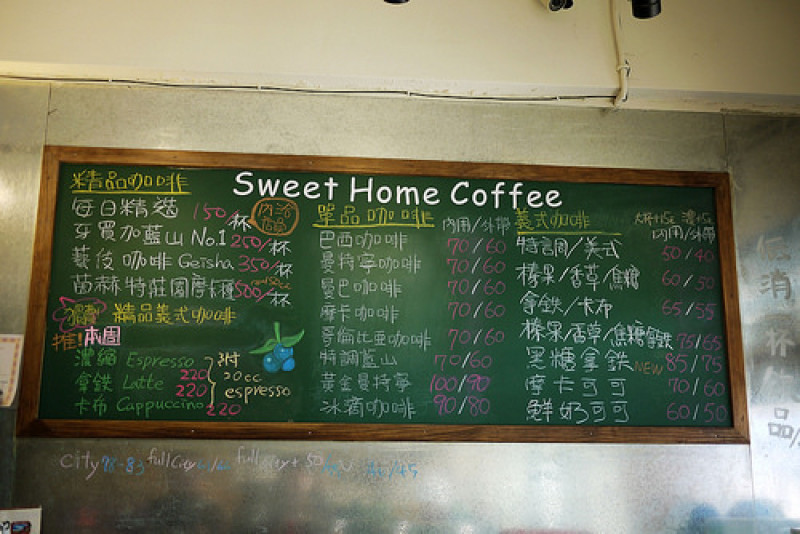 Sweet Home Coffee
精品咖啡
每日精選 150/杯
牙買加藍山 No.1 250/杯
藝伎咖啡 Geisha 350/杯
苗赫特莊園摩卡種 500/杯
精品義式咖啡
推!本週
濃縮 Espresso
拿鉄 Latte 220
卡布 Cappuccino 220
220
附
20cc
espresso
單品咖啡 內用/外帶
巴西咖啡 70/60
曼特寧咖啡 70/60
曼巴咖啡 70/60
摩卡咖啡 70/60
哥倫比亞咖啡 70/60
特調藍山 70/60
黃金曼特寧 100/90
冰滴咖啡 90/80
義式咖啡
內用/外帶
特調/美式 50/40
榛果/香草/焦糖 60/50
拿鉄/卡布 65/55
榛果/香草/焦糖拿鉄 75/65
黑糖拿鉄 NEW 85/75
摩卡可可 70/60
鮮奶可可 60/50
city full city full city + 50
低消一杯飲品